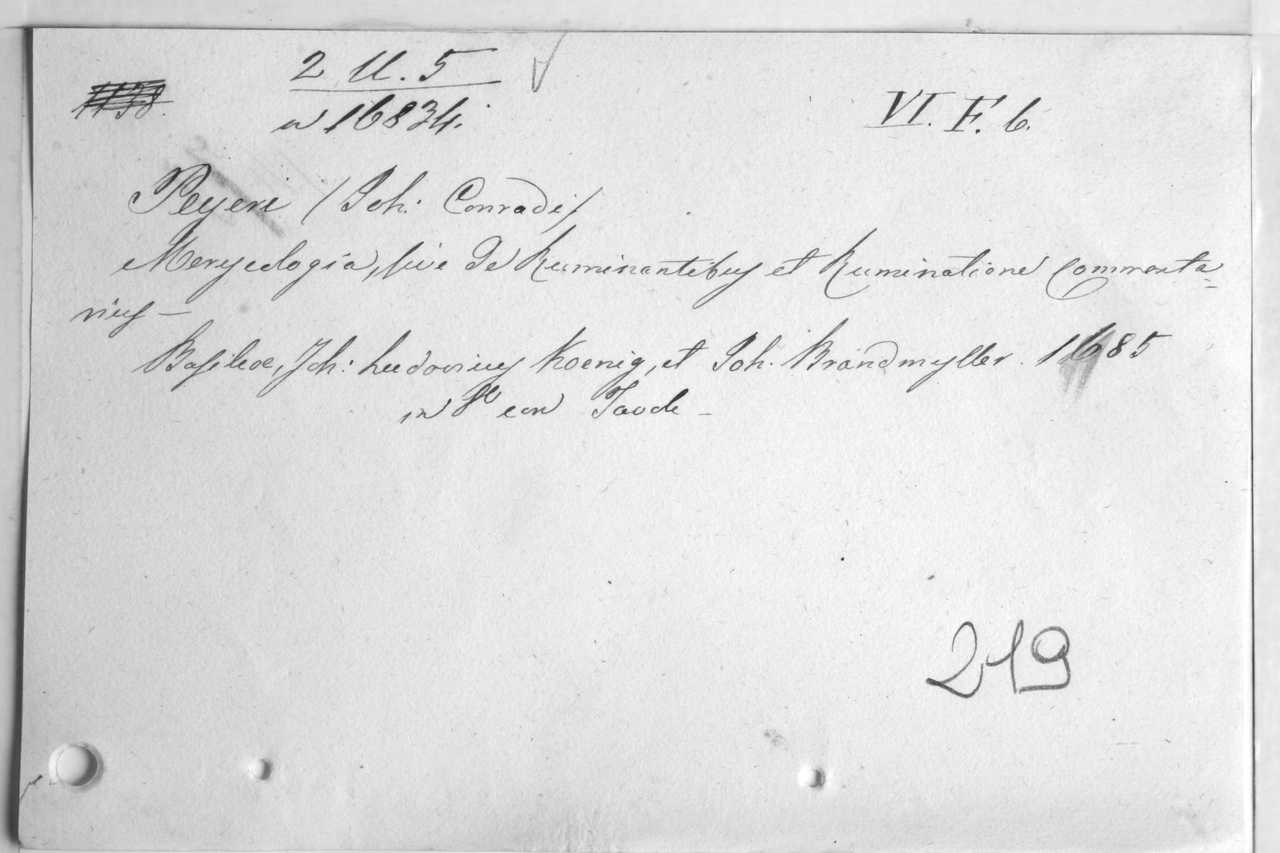 2 U. 5
1138.
n 16834.
VI. F. 6.
Peyeri / Joh: Conradi /
Merycologia, sive de Ruminantibus et Ruminatione Commenta-
rius —
Basileæ, Joh: Ludovicus Koenig, et Joh: Brandmyller. 1685
in 8º con Tavole —
219